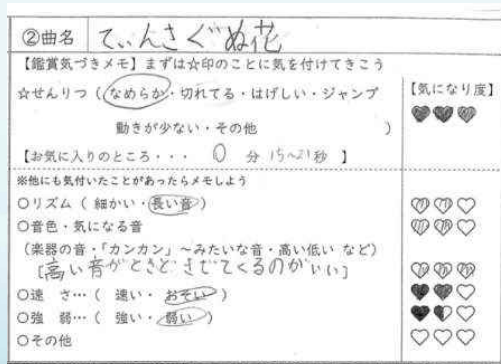 ②曲名 てぃんさぐぬ花
【鑑賞気づきメモ】まずは☆印のことに気を付けてきこう
☆せんりつ(なめらか・切れてる・はげしい・ジャンプ
動きが少ない・その他 )
【気になり度】
【お気に入りのところ・・・ 0 分 15~21秒 】
※他にも気付いたことがあったらメモしよう
○リズム( 細かい・長い音 )
○音色・気になる音
(楽器の音・「カンカン」~みたいな音・高い低い など)
[高い音がときどききこてくるのがいい]
○速 さ…( 速い・おそい )
○強 弱…( 強い・弱い )
○その他